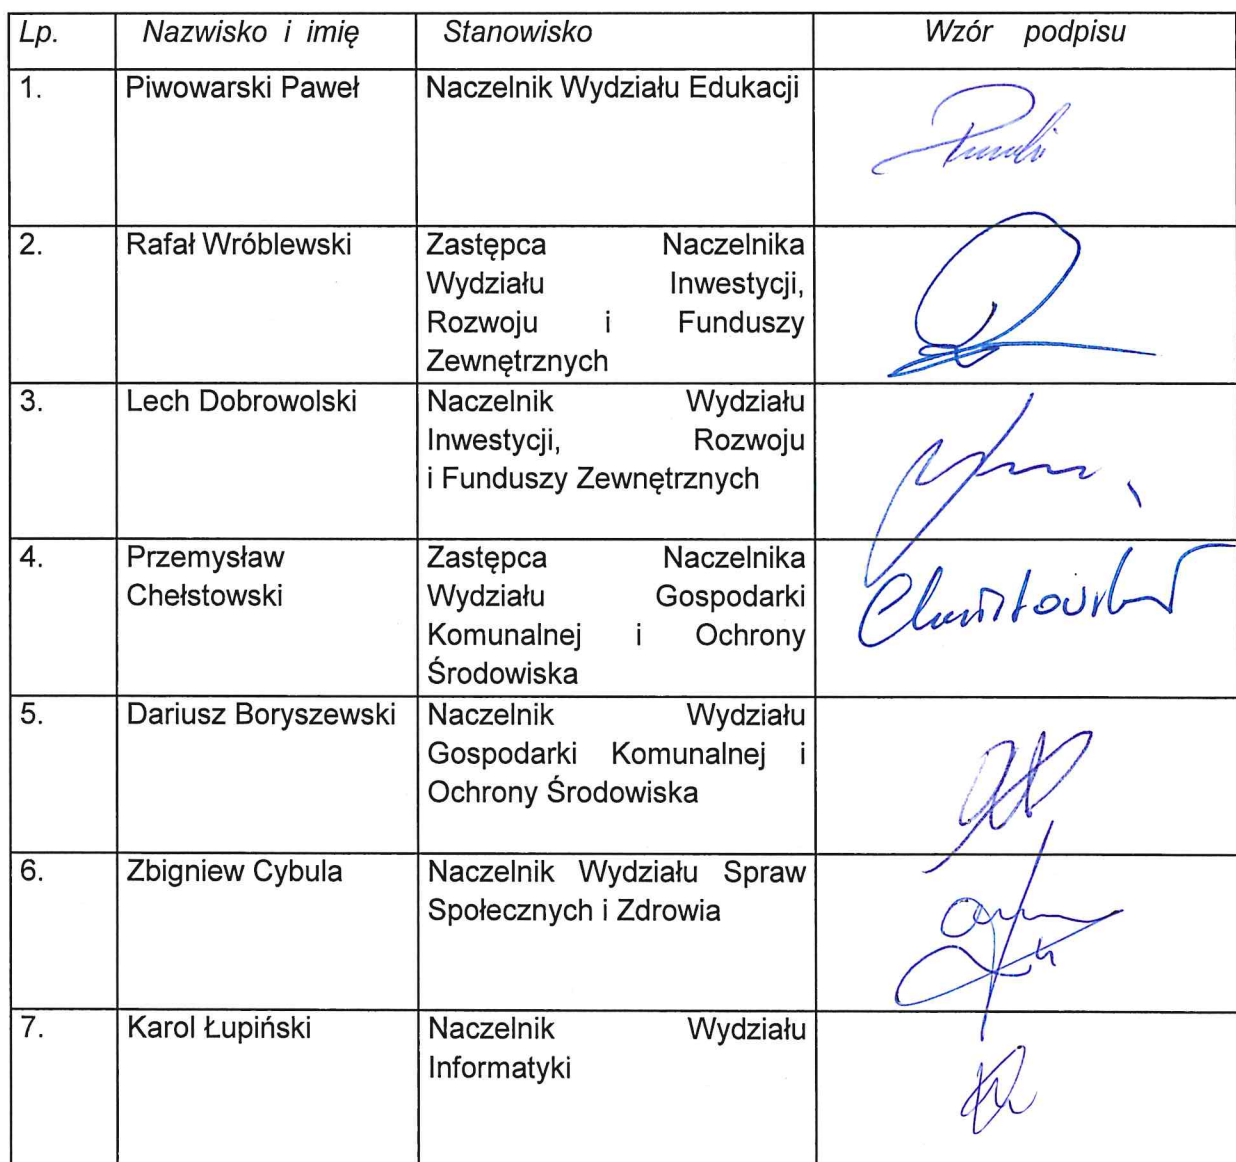 Lp. Nazwisko i imię Stanowisko Wzór podpisu
1. Piwowarski Paweł Naczelnik Wydziału Edukacji
2. Rafał Wróblewski Zastępca Naczelnika
Wydziału Inwestycji,
Rozwoju i Funduszy
Zewnętrznych
3. Lech Dobrowolski Naczelnik Wydziału
Inwestycji, Rozwoju
i Funduszy Zewnętrznych
4. Przemysław Zastępca Naczelnika
Chełstowski Wydziału Gospodarki
Komunalnej i Ochrony
Środowiska
5. Dariusz Boryszewski Naczelnik Wydziału
Gospodarki Komunalnej i
Ochrony Środowiska
6. Zbigniew Cybula Naczelnik Wydziału Spraw
Społecznych i Zdrowia
7. Karol Łupiński Naczelnik Wydziału
Informatyki